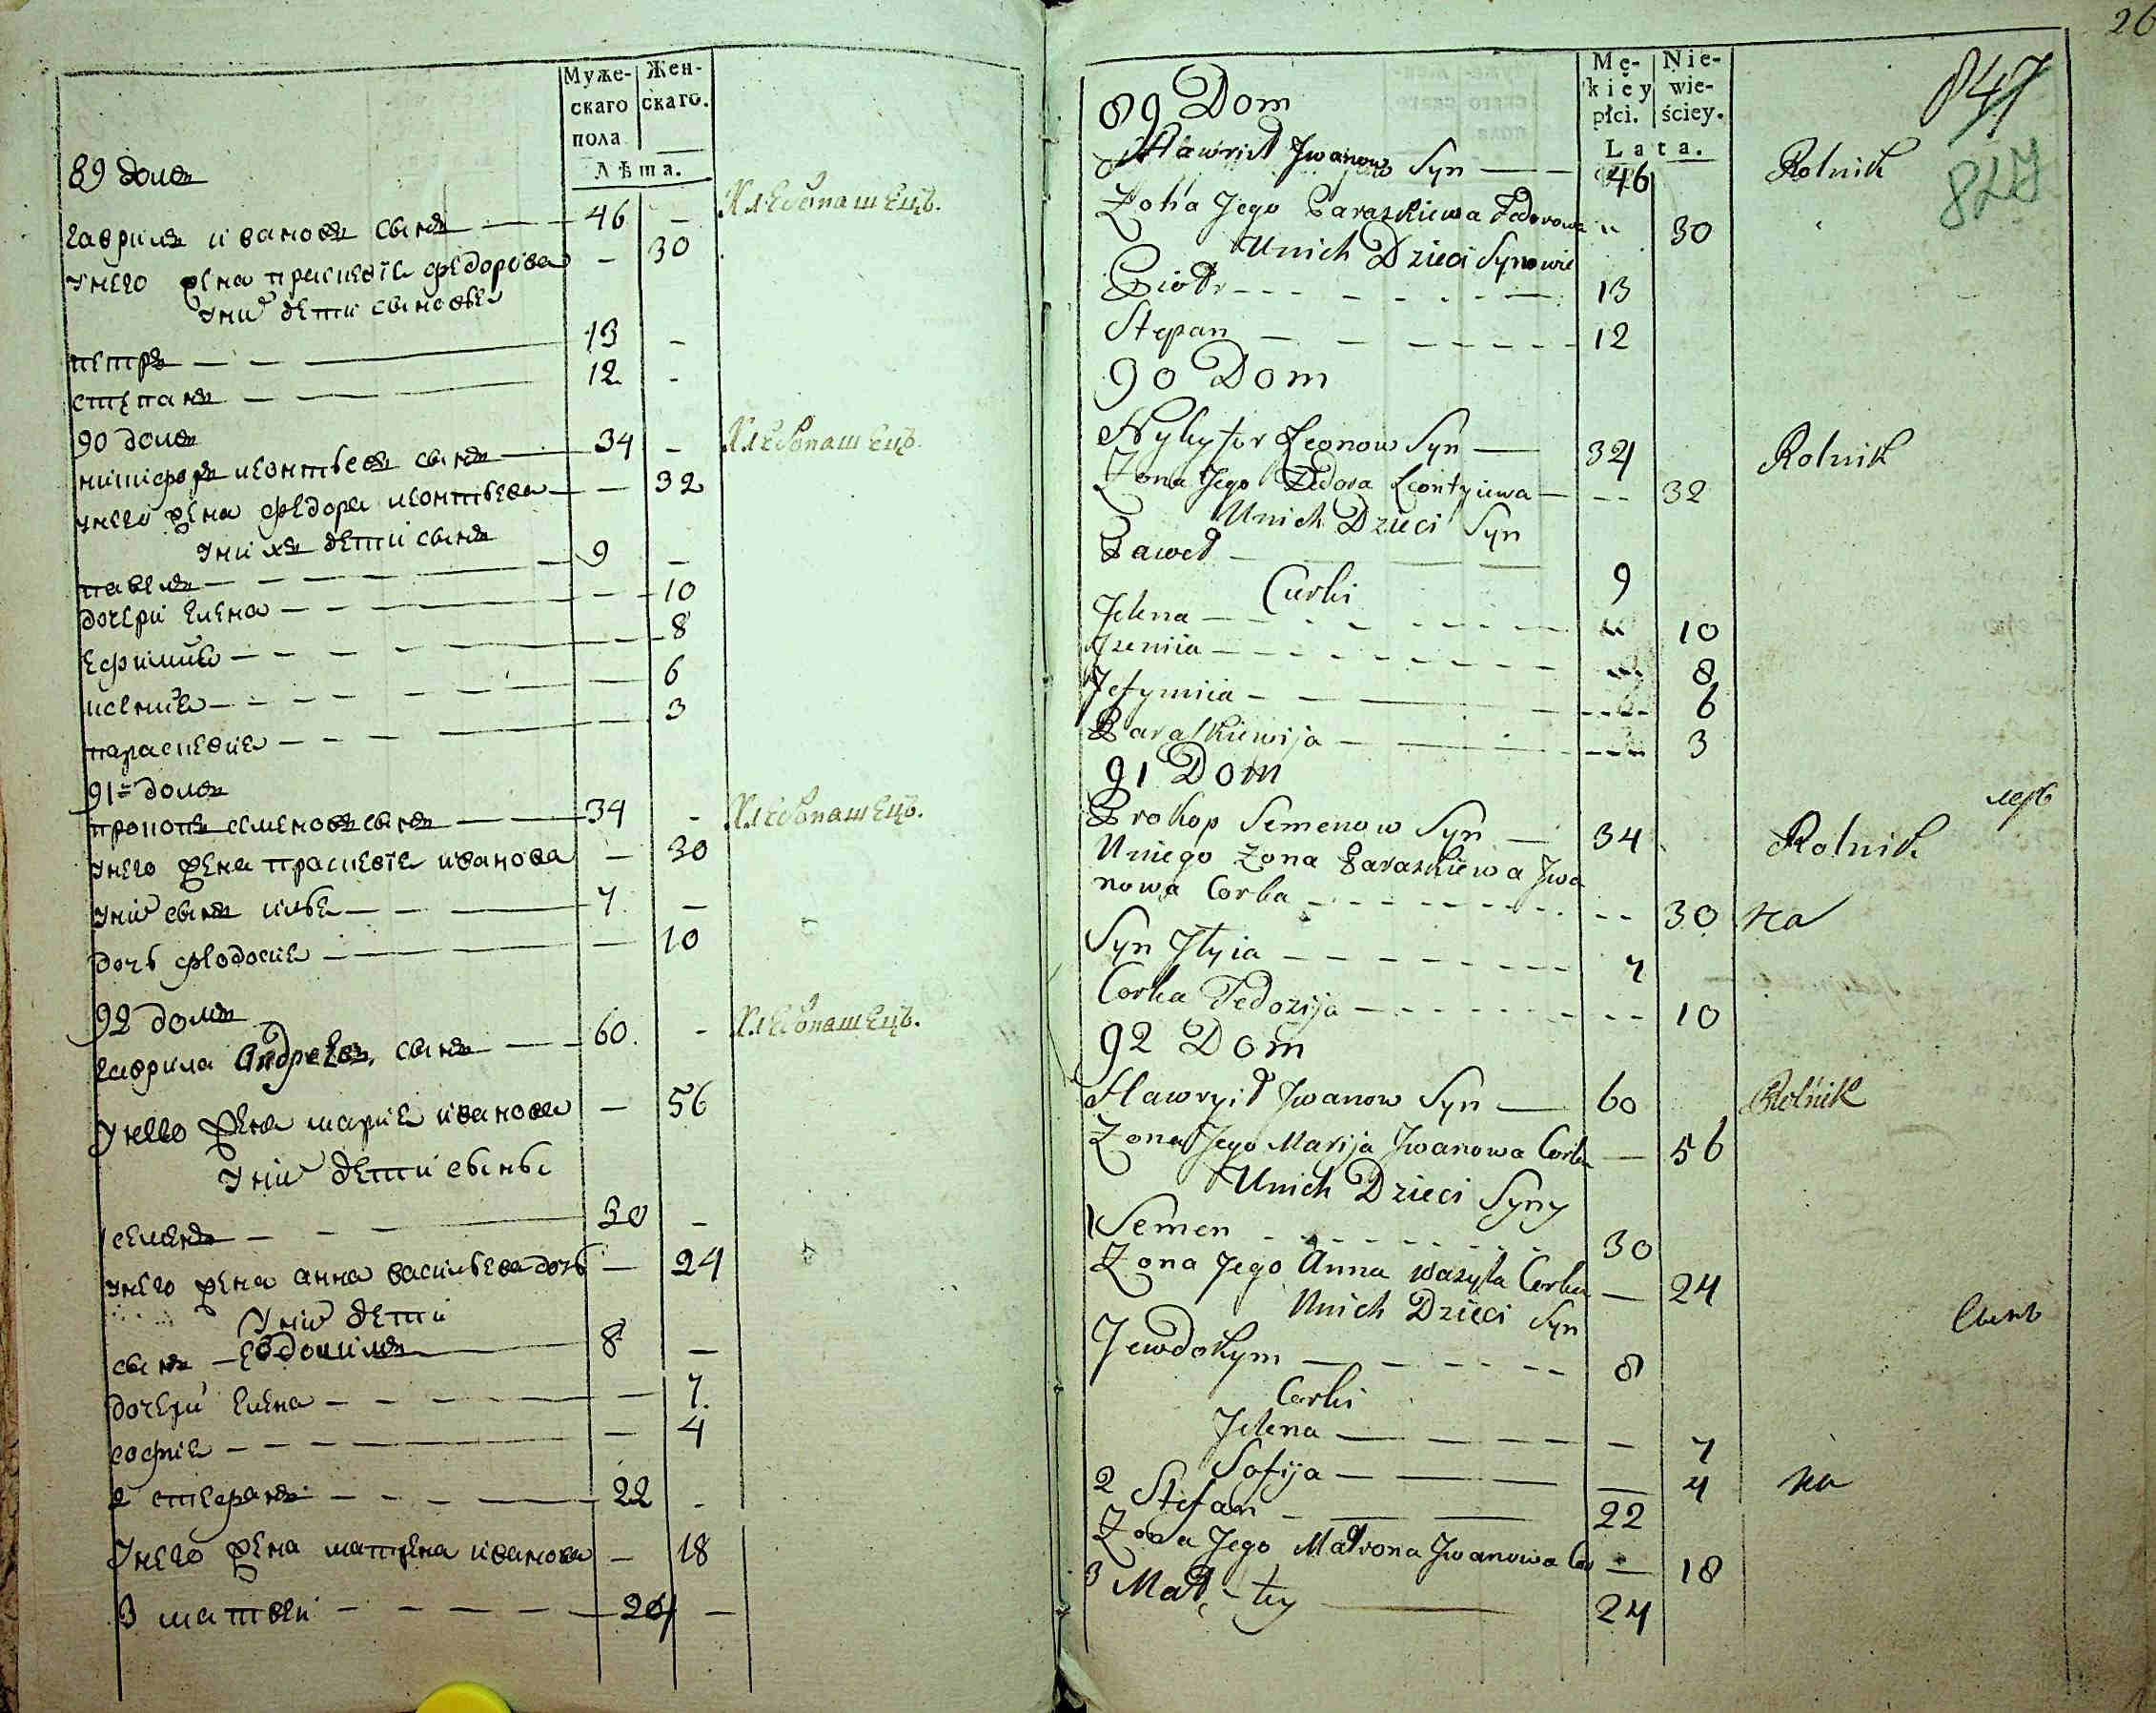 Муже-
скаго
пола
Жен-
скаго.
Лѣта.
89 домъ
гаврилъ ивановъ сынъ — 46 -
Хлебопашецъ.
унего жена праскевѣя федорова - 30
уних дети сыновья
петръ — 13 -
степанъ — 12 -
90 домъ
никифоръ леонтьевъ сынъ — 34 -
Хлебопашецъ.
унего жена федора леонтьева — 32
унихъ дети сынъ
павелъ — 9 -
дочери елена — 10
ефимия — 8
ксения — 6
параскевия — 3
91= домъ
прокопъ семеновъ сынъ — 34 -
Хлебопашецъ.
унего жена праскевѣя иванова — 30
уних сынъ илья — 7 -
дочь феодосия — 10
92 домъ
гаврила Андреевъ сынъ — 60. -
Хлебопашецъ.
унего жена мария иванова — 56
уних дети сыны
1 семенъ — 30 -
унего жена анна васильева дочь — 24
уних дети
сынъ — евдокимъ — 8 —
дочери елена — 7.
софия — 4
2 стефанъ — 22 -
унего жена матрена иванова — 18
3 матвей — 24 —
26
Mę-
kiey
płci.
Nie-
wie-
ściey.
Lata.
847
827
89 Dom
Hawrił Jwanow Syn — 46
Rolnik
Żona Jego Paraskiewa Fedorowa " 30
Unich Dzieci Synowie
Piotr — 13
Stepan — 12
90 Dom
Nykyfor Leonow Syn — 34
Rolnik
Żona Jego Fedora Leontyiewa — 32
Unich Dzieci Syn
Paweł — 9
Curki
Jelena — 10
Xseniia — 8
Jefymiia — 6
Paraskiewija — 3
91 Dom
Prokop Semenow Syn — 34
Rolnik
Uniego Żona Paraskiewa Jwa
nowa Corka — 30
на
Syn Jłyia — 7
Corka Fedozija — 10
92 Dom
Hawryił Jwanow Syn — 60
Rolnik
Żona Jego Marija Jwanowa Corka — 56
Unich Dzieci Syny
1 Semen — 30
Żona Jego Anna Wasyla Corka — 24
Unich Dzieci Syn
Jewdokym — 8
Corki
Jelena — 7
Sofija — 4
на
2 Stefan — 22
Żona Jego Matrona Jwanowa Cor — 18
3 Mat-wy — 24